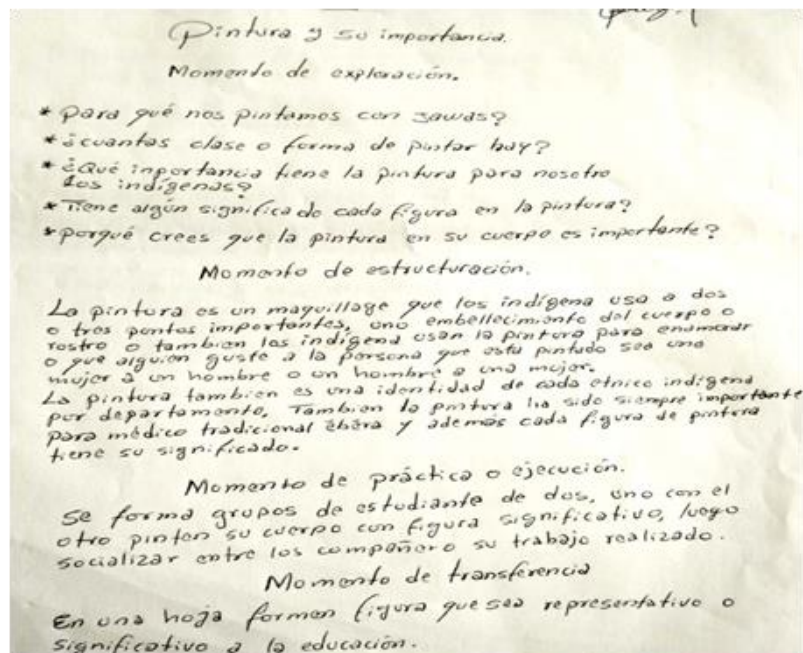 Pintura y su importancia.
Momento de exploración.
* para qué nos pintamos con jawas?
* ¿cuantas clase o forma de pintar hay?
* ¿Qué inportancia tiene la pintura para nosotro
los indígenas?
* Tiene algún significado cada figura en la pintura?
* porqué crees que la pintura en su cuerpo es importante?
Momento de estructuración.
La pintura es un maquillage que los indígena usa a dos
o tres puntos importantes, uno embellecimiento del cuerpo o
rostro o tambien los indígena usan la pintura para enamorar
o que alguien guste a la persona que está pintado sea una
mujer a un hombre o un hombre a una mujer.
La pintura tambien es una identidad de cada etnico indígena
por departamento. Tambien la pintura ha sido siempre importante
para médico tradicional êbêra y ademas cada figura de pintura
tiene su significado.
Momento de práctica o ejecución.
Se forma grupos de estudiante de dos, uno con el
otro pinten su cuerpo con figura significativo, luego
socializar entre los compañero su trabajo realizado.
Momento de transferencia
En una hoja formen figura que sea representativo o
significativo a la educación.